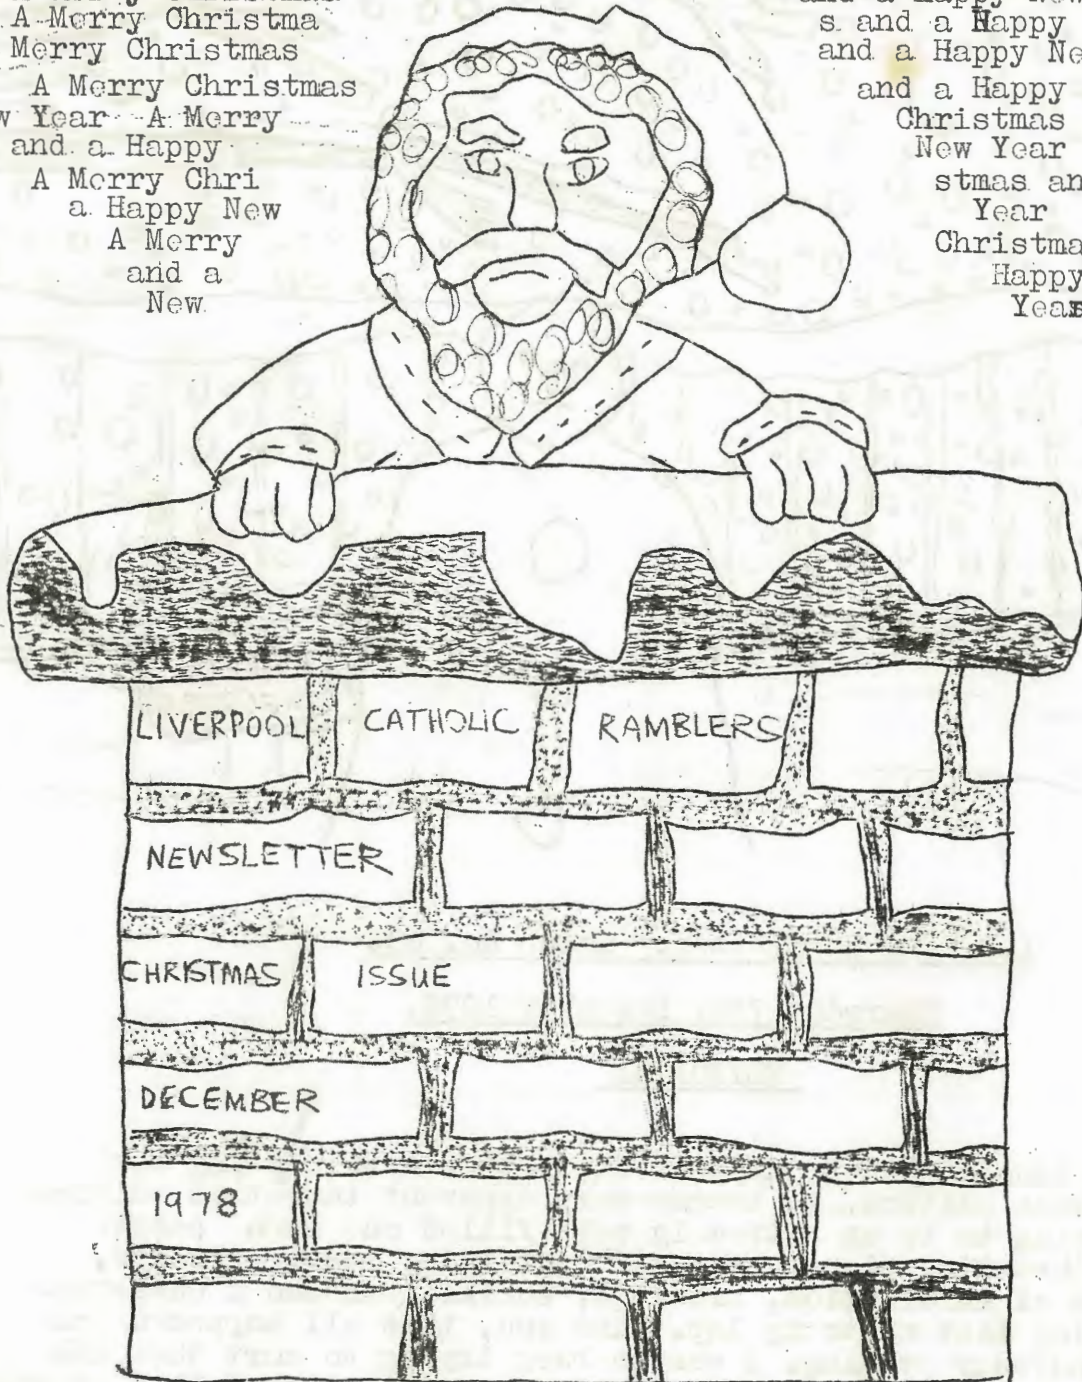 A Merry Christma
Merry Christmas
A Merry Christmas
Year A Merry
and a Happy
A Merry Chri
a Happy New
A Merry
and a
New
s and a Happy
and a Happy Ne
and a Happy
Christmas
New Year
stmas an
Year
Christma
Happy
Year
LIVERPOOL CATHOLIC RAMBLERS
NEWSLETTER
CHRISTMAS ISSUE
DECEMBER
1978